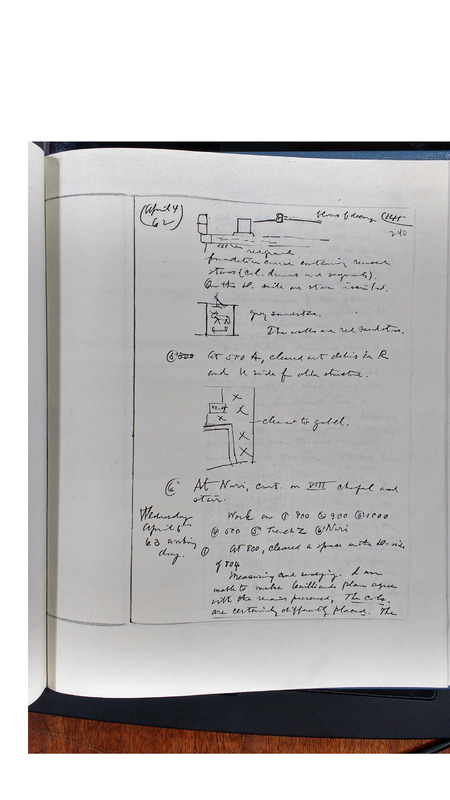 (April 4
62)
240
red sand
foundation course containing reused
stones (col. drums and segments).
On the W. side one stone inscribed.
grey sandstone.
The walls are red sandstone.
⑤ At 500 A, cleared out debris in R
and U side of older structure.
clear to gebel.
⑥ At Nuri, cont. on VIII chapel and
stair.
Wednesday
April 5
63 working
day.
Work on ① 800 ② 900 ③ 1000
④ 500 ⑤ Trench Z ⑥ Nuri
① At 800, cleared a space on the W-side
of 804
Measuring and studying. I am
unable to make Cailliauds plan agree
with the remains preserved. The cols.
are certainly differently placed. The